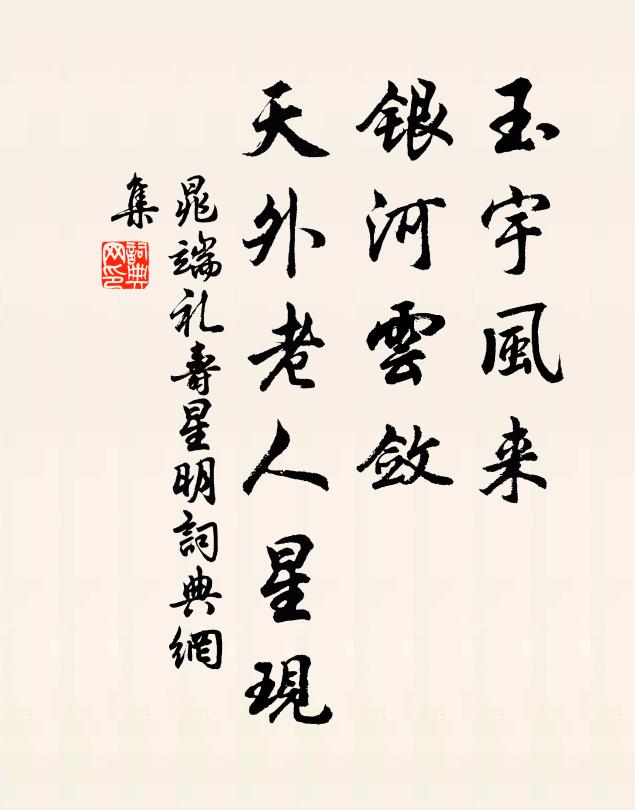 玉宇風来
銀河雲斂
天外老人星現
晁端礼壽星明詞典網
集
詞典
网印